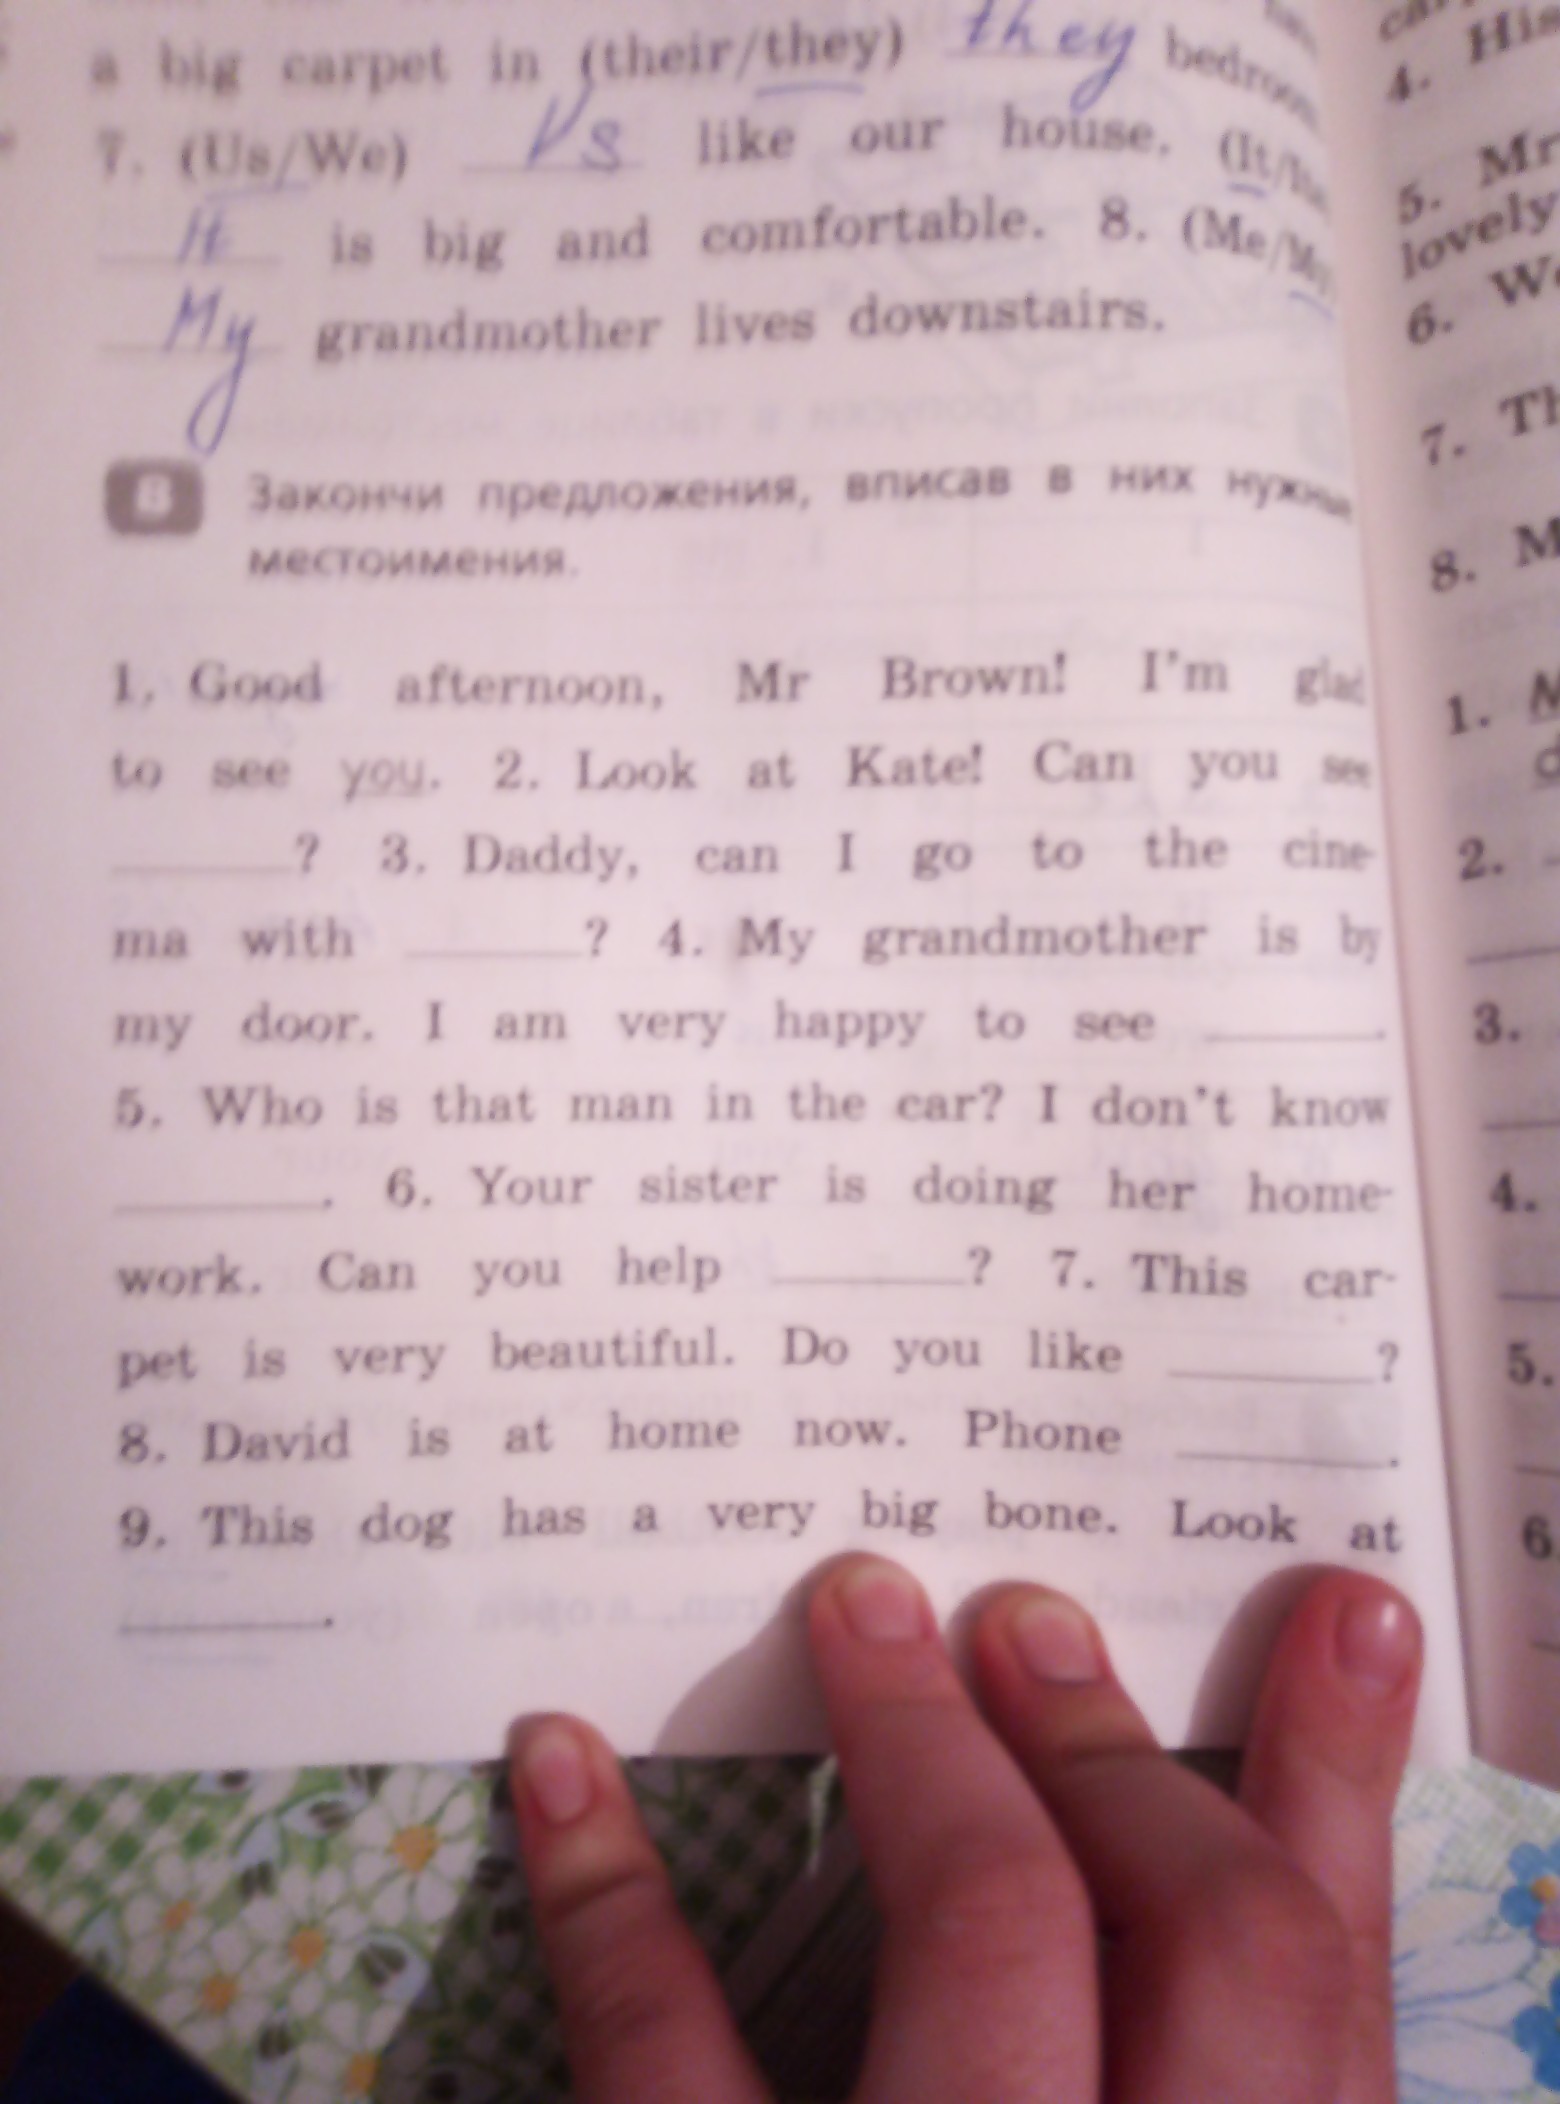 a big carpet in (their/they) they bedroom
7. (Us/We) Us like our house. (It/
It is big and comfortable. 8. (Me/My
My grandmother lives downstairs.
8 Закончи предложения, вписав в них нужные
местоимения.
1. Good afternoon, Mr Brown! I'm glad
to see you. 2. Look at Kate! Can you see
? 3. Daddy, can I go to the cine-
ma with ? 4. My grandmother is by
my door. I am very happy to see .
5. Who is that man in the car? I don't know
. 6. Your sister is doing her home-
work. Can you help ? 7. This car-
pet is very beautiful. Do you like ?
8. David is at home now. Phone .
9. This dog has a very big bone. Look at
.
4. His
5. Mr
lovely
6. We
7. Th
8. M
1.
2.
3.
4.
5.
6.